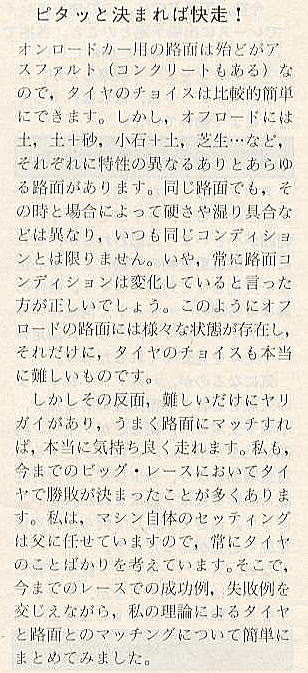 ピタッと決まれば快走！
オンロードカー用の路面は殆どがア
スファルト（コンクリートもある）な
ので，タイヤのチョイスは比較的簡単
にできます。しかし，オフロードには
土，土＋砂，小石＋土，芝生…など，
それぞれに特性の異なるありとあらゆ
る路面があります。同じ路面でも，そ
の時と場合によって硬さや湿り具合な
どは異なり，いつも同じコンディショ
ンとは限りません。いや，常に路面コ
ンディションは変化していると言った
方が正しいでしょう。このようにオフ
ロードの路面には様々な状態が存在し，
それだけに，タイヤのチョイスも本当
に難しいものです。
しかしその反面，難しいだけにヤリ
ガイがあり，うまく路面にマッチすれ
ば，本当に気持ち良く走れます。私も，
今までのビッグ・レースにおいてタイ
ヤで勝敗が決まったことが多くありま
す。私は，マシン自体のセッティング
は父に任せていますので，常にタイヤ
のことばかりを考えています。そこで，
今までのレースでの成功例，失敗例を
交じえながら，私の理論によるタイヤ
と路面とのマッチングについて簡単に
まとめてみました。